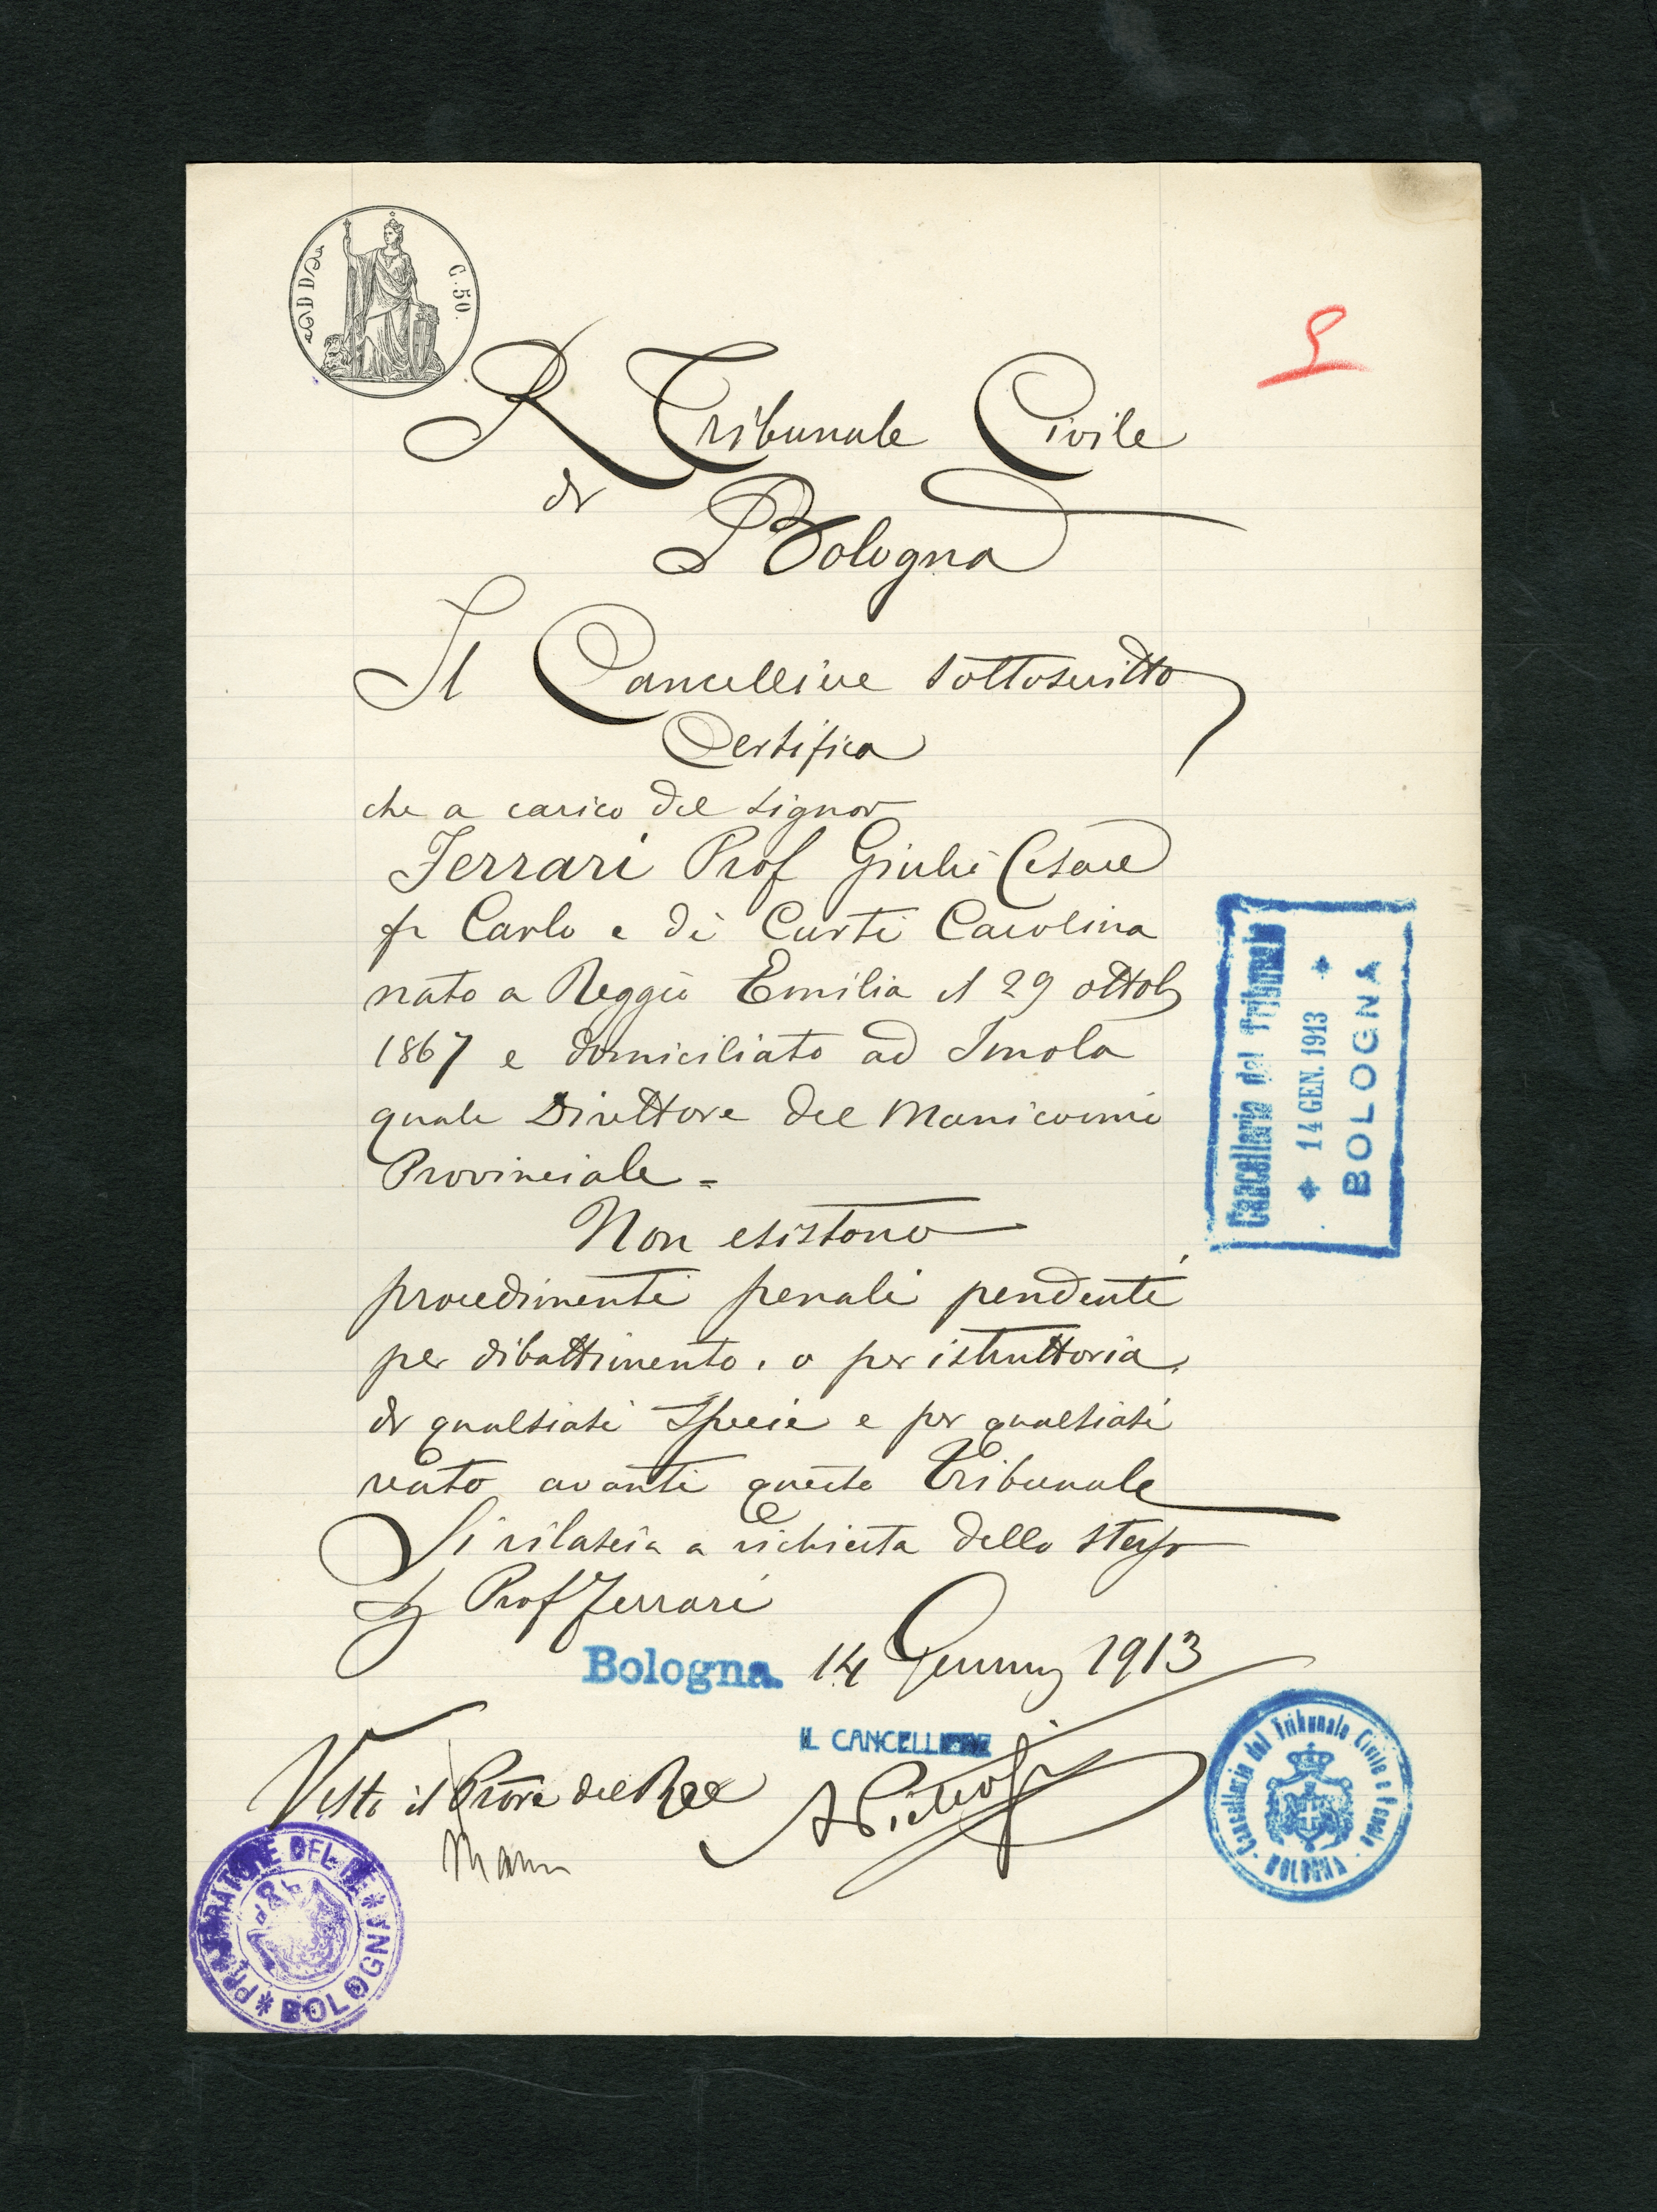 C. 50.
R Tribunale Civile
di
Bologna
Il Cancelliere sottoscritto
Certifica
che a carico del Signor
Ferrari Prof Giulio Cesare
fu Carlo e di Curti Carolina
nato a Reggio Emilia il 29 ottob
1867 e domiciliato ad Imola
quale Direttore del Manicomio
Provinciale =
Non esistono
procedimenti penali pendenti
per dibattimento, o per istruttoria,
di qualsiasi specie e per qualsiasi
reato avanti questo Tribunale
Si rilascia a richiesta dello stesso
Prof Ferrari
Bologna 14 Gennaio 1913
IL CANCELLIERE
Visto il Proре del Re
Cancelleria del Tribunale
14 GEN. 1913
BOLOGNA
Cancelleria del Tribunale Civile e Penale
BOLOGNA
PROCURATORE DEL RE
BOLOGNA